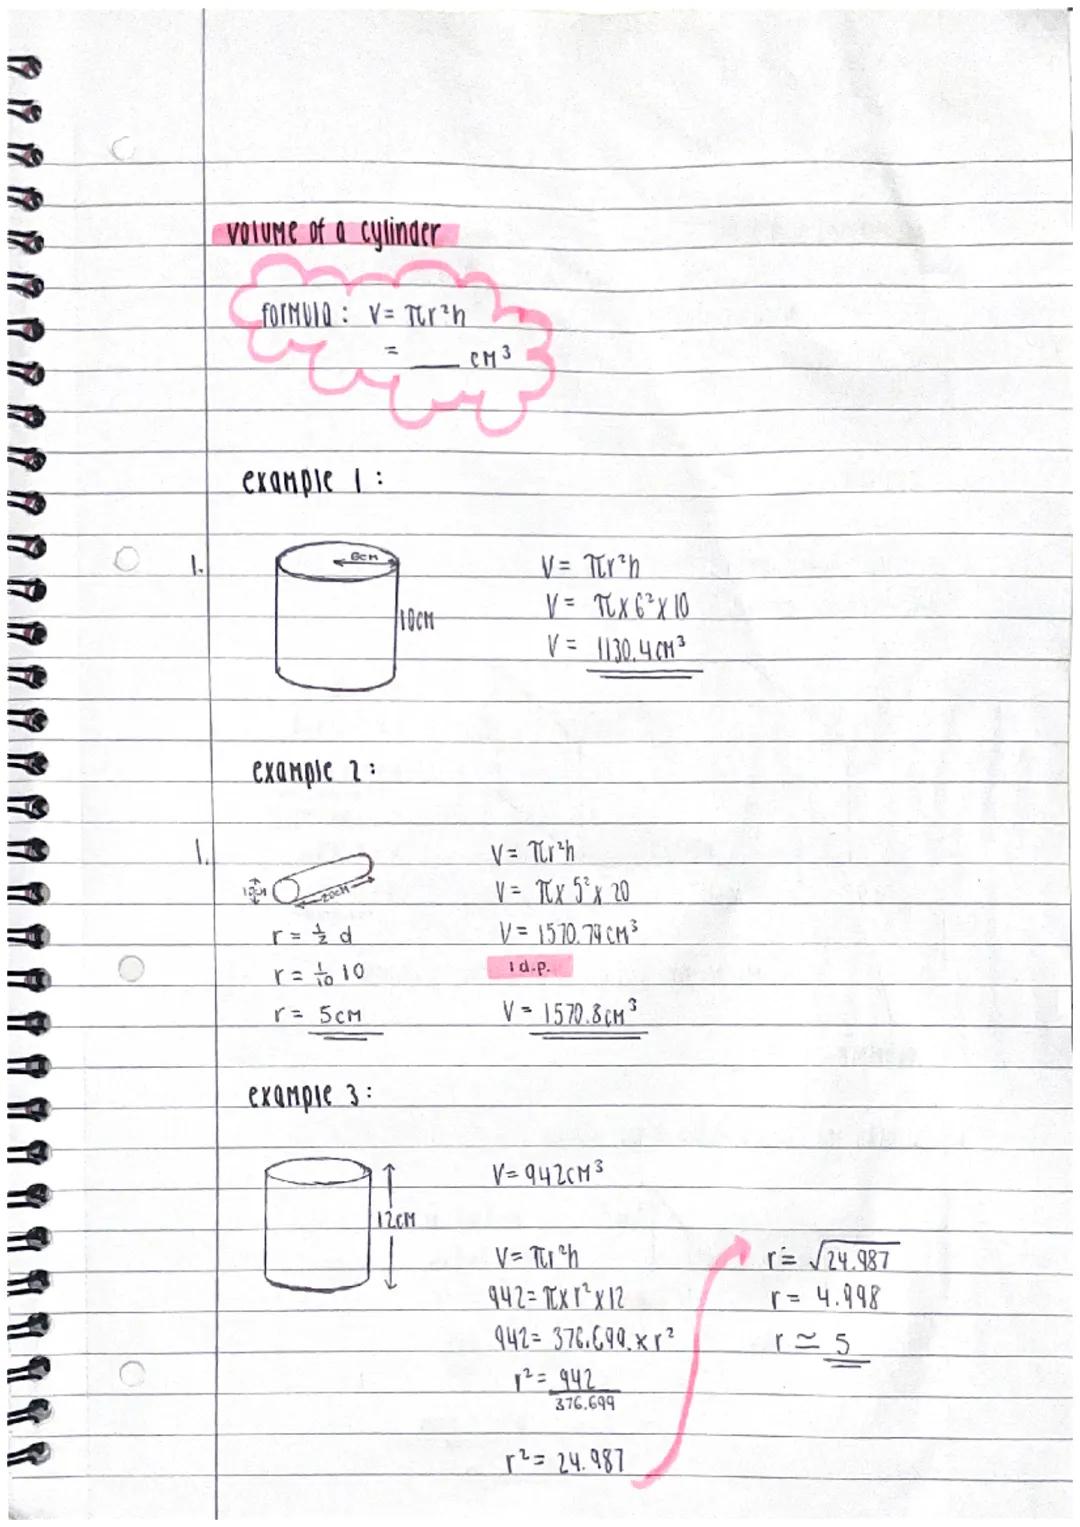 volume of a cylinder
formula: V = πr²h
= ___ cm³
example 1:
1.
6cm
10cm
V = πr²h
V = π x 6² x 10
V = 1130.4cm³
example 2:
1.
20cm
r = ½ d
r = 1/10 10
r = 5cm
V = πr²h
V = π x 5² x 20
V = 1570.79cm³
1 d.p.
V = 1570.8cm³
example 3:
12cm
V = 942cm³
V = πr²h
942 = π x r² x 12
942 = 376.699 x r²
r² = 942
376.699
r² = 24.987
r = √24.987
r = 4.998
r ≃ 5